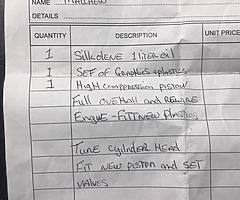 MATTHEW
DETAILS
QUANTITY DESCRIPTION UNIT PRICE
1 Silkolene 1 liter oil
1 SET OF Graphics + plastics
1 High compression piston
Full overhall and rewire
Engine - Fit new plastics
Tune cylinder Head
Fit new piston and SET
valves